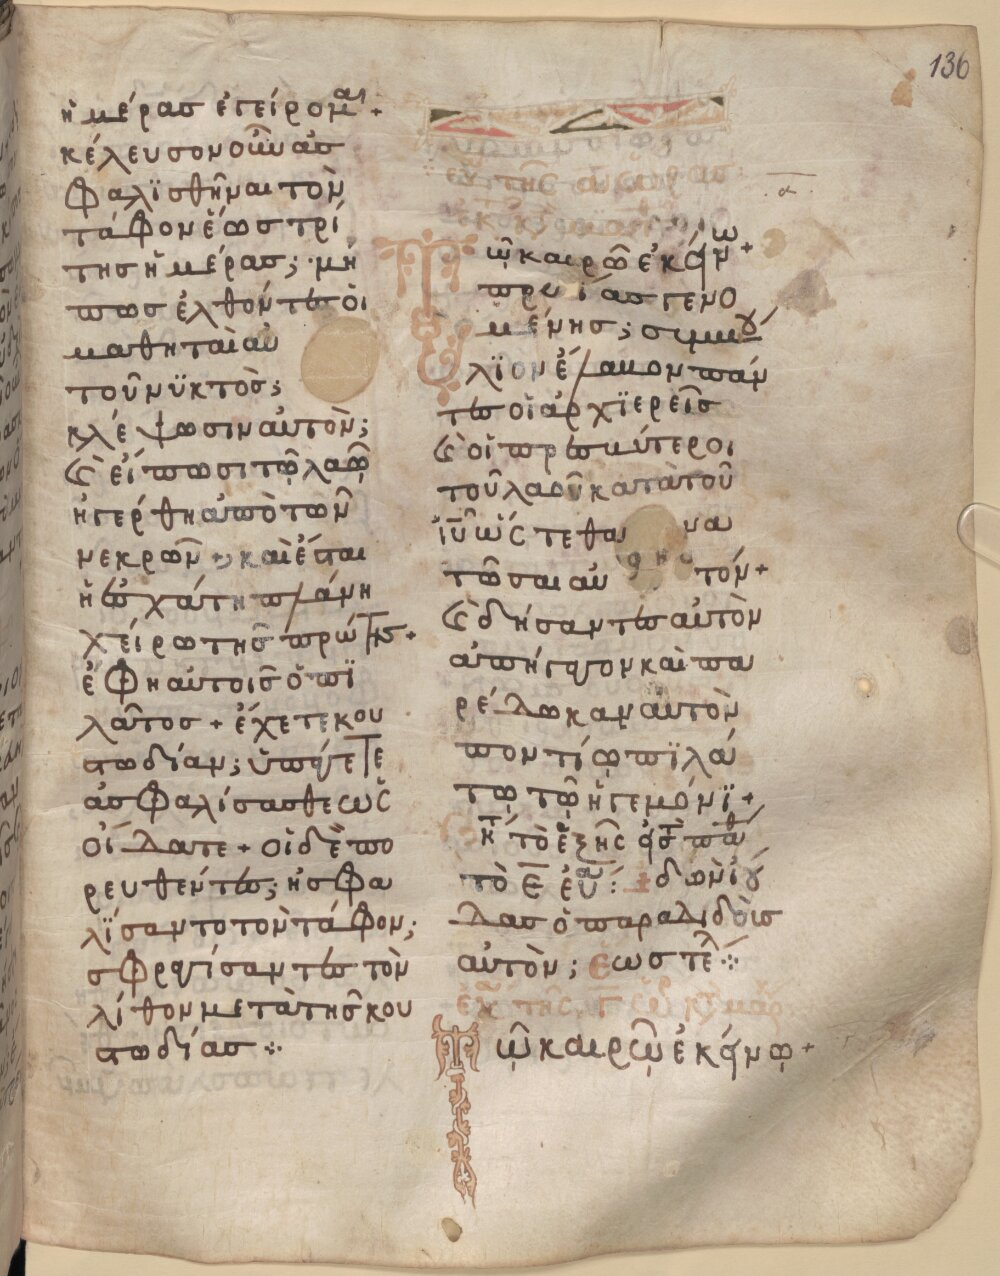 136
ἡμέρασ ἐγείρομαι +
κέλευσον οὖν ἀσ
φαλϊσθῆναι τὸν
τάφον ἕωσ τρί
τησ ἡμέρασ; μή
πωσ ἐλθόντεσ ὁι
μαθηταὶ αὐ
τοῦ νϋκτὸσ;
κλέψωσιν αὐτὸν;
ϗ εἴπωσι τῶ λαῶ
ἠγέρθη ἀπὸ τῶν
νεκρῶν + καὶ ἔσται
ἡ ἐσχάτη πλάνη
χείρω τησ πρώτησ +
ἔφη αὐτοισ ὁ πϊ
λᾶτοσ + ἔχετε κου
στωδίαν; ὑπάγετε
ἀσφαλίσασθε ὡσ
οἴδατε + οἱ δὲ πο
ρευθέντεσ; ἠσφα
λϊσαντο τὸν τάφον;
σφραγίσαντεσ τὸν
λίθον μετὰ τησ κου
στωδίασ ⁘
Τῶ καιρῶ ἐκείνω +
πρωΐασ γενο
μένησ; συμβού
λϊον ἔλαβον πάν
τεσ οἱ ἀρχϊερεῖσ
ϗ οἱ πρεσβύτεροι
τοῦ λαοῦ κατὰ τοῦ
ἰῦ ὡσ τε θανα
τῶσαι αὐτόν +
ϗ δήσαντεσ αὐτὸν
ἀπήγαγον καὶ πα
ρέδωκαν αὐτὸν
ποντίω πϊλά
τω τῶ ἡγεμόνϊ +
τὸ ἑξῆσ
τὸ ε̄ εὐα: + ἰδὼν ἰού
δασ ὁ παραδιδὸισ
αὐτὸν; ἕωσ τέλ ⁘
Τῶ καιρῶ ἐκείνω +